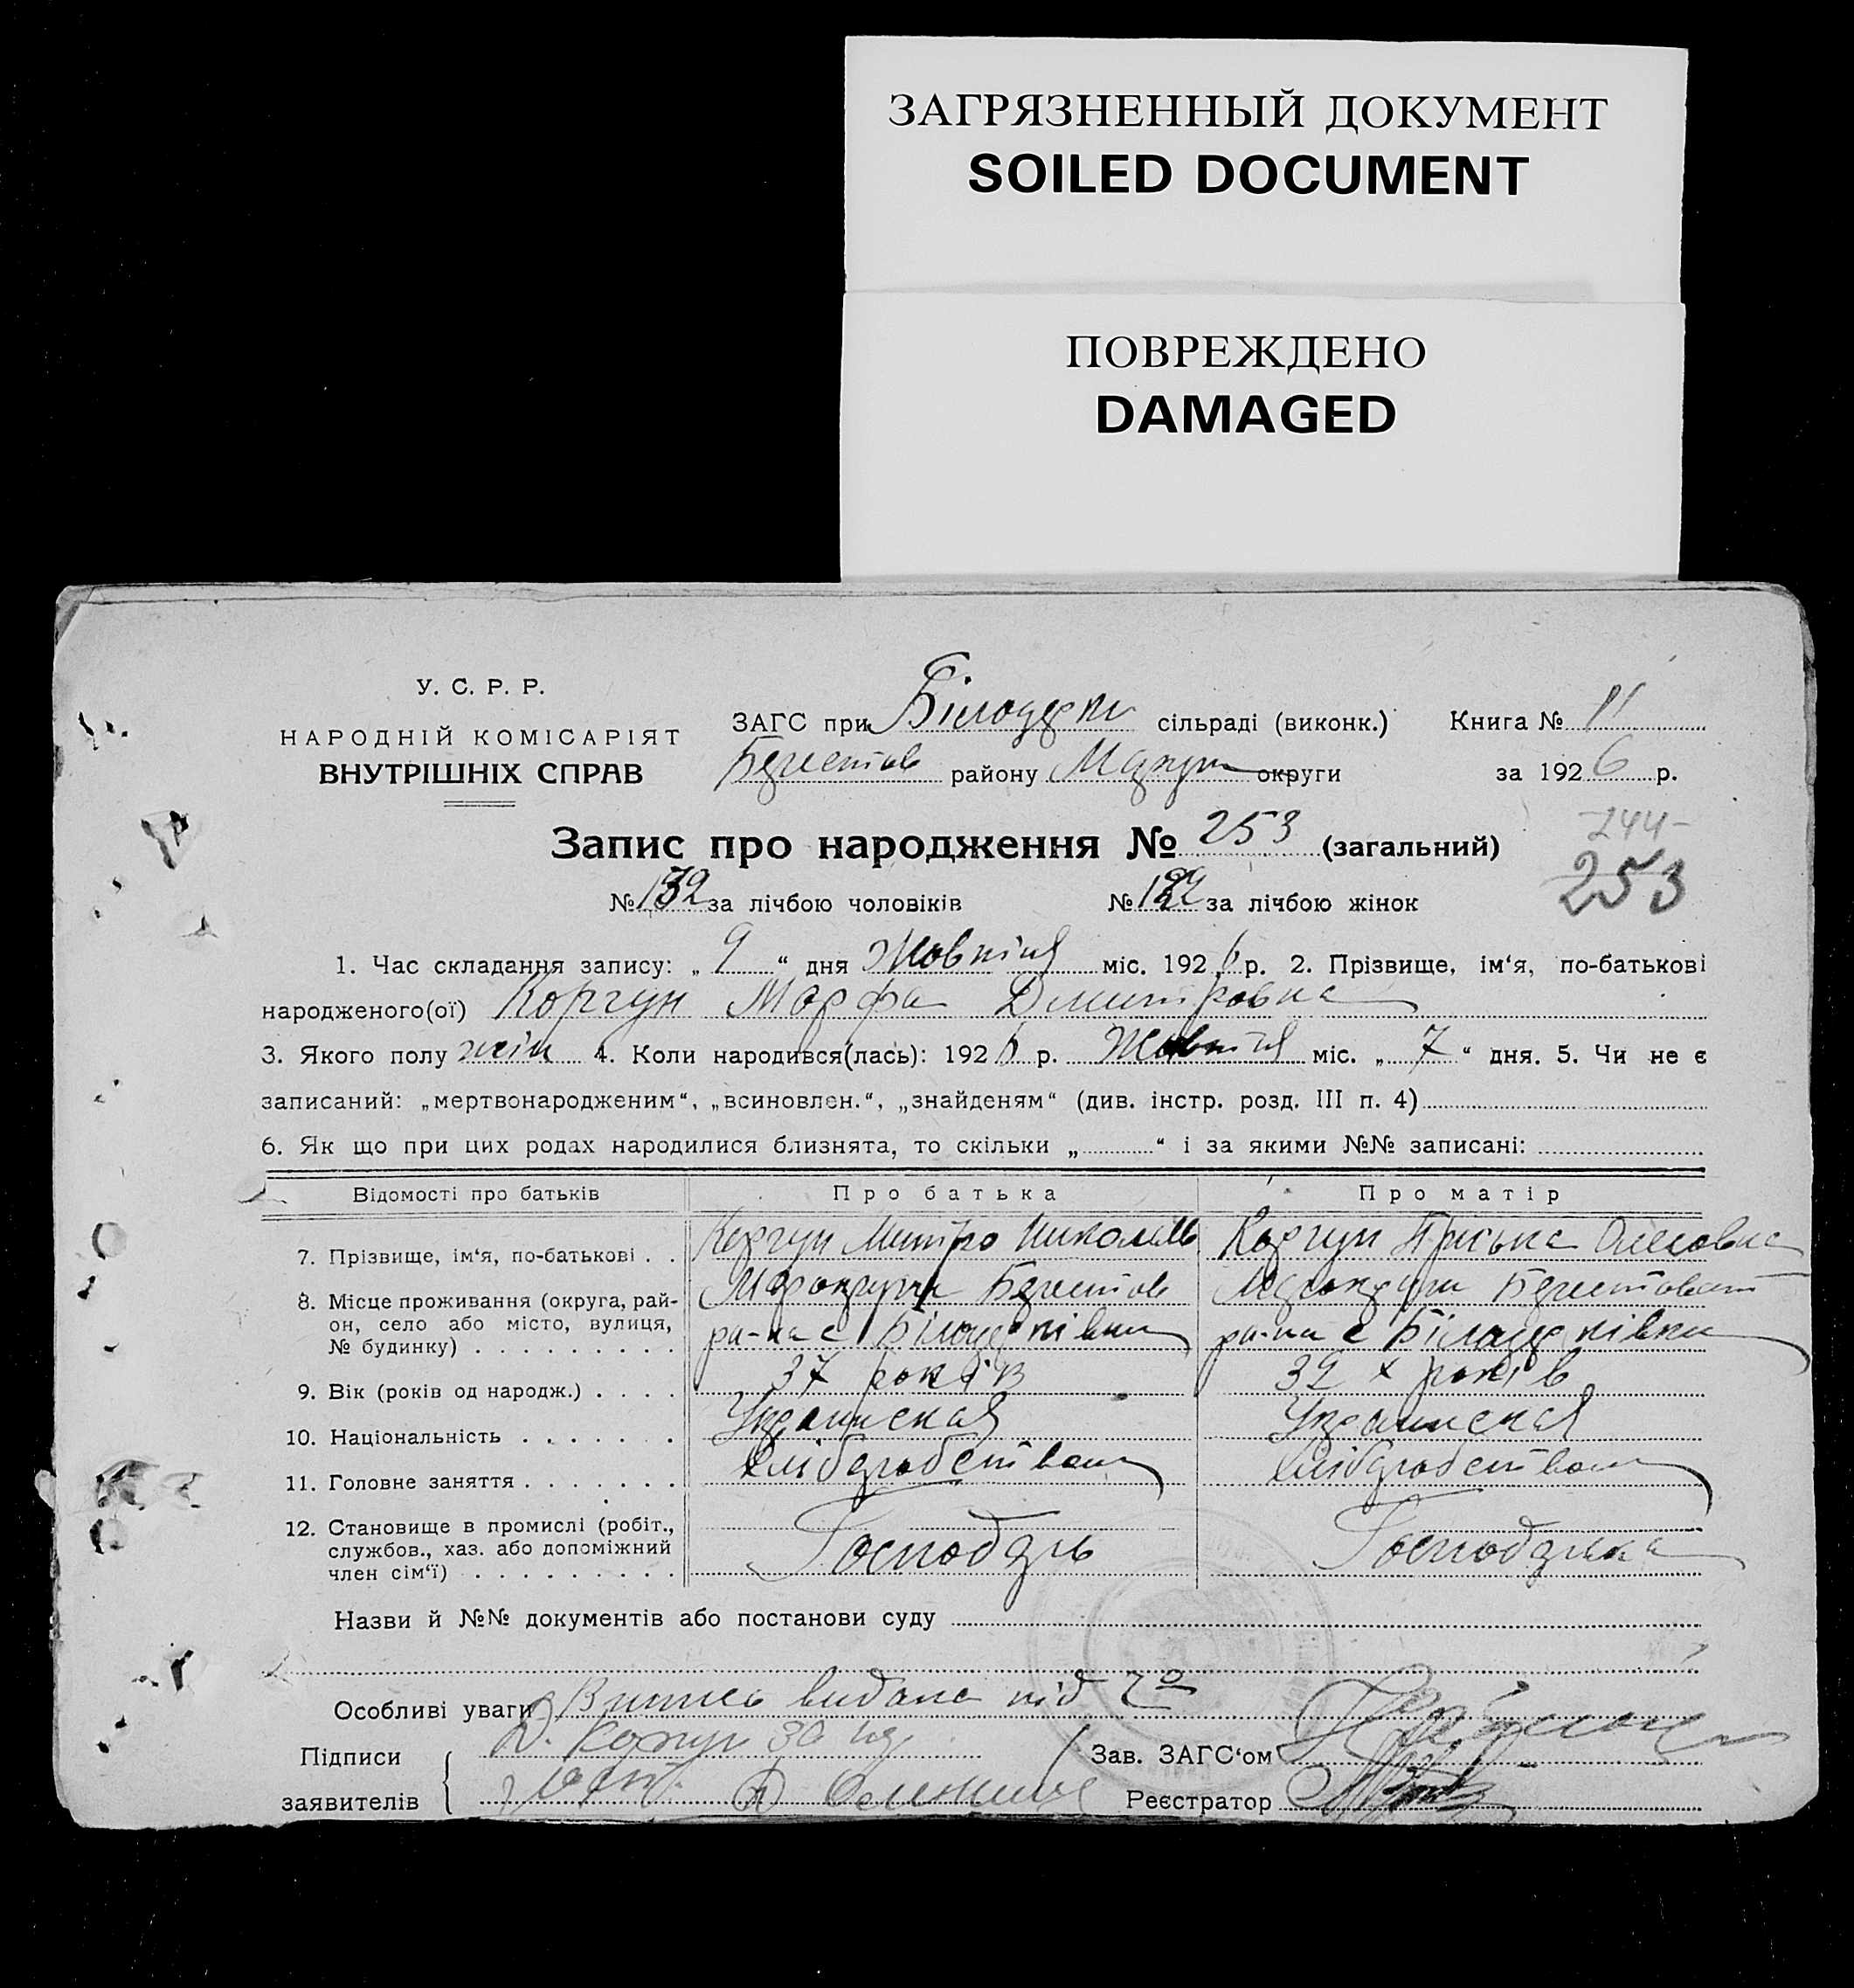 ЗАГРЯЗНЕННЫЙ ДОКУМЕНТ
SOILED DOCUMENT
ПОВРЕЖДЕНО
DAMAGED
У. С. Р. Р.
НАРОДНІЙ КОМІСАРІЯТ
ВНУТРІШНІХ СПРАВ
ЗАГС при Білоцерк сільраді (виконк.) Книга № 11
Берестов району Маріуп округи за 1926 р.
Запис про народження № 253 (загальний)
244-
253
№ 132 за лічбою чоловіків № 122 за лічбою жінок
1. Час складання запису: „ 9 “ дня Жовтня міс. 1926 р. 2. Прізвище, ім‘я, по-батькові
народженого(ої) Коргун Марфа Дмитровна
3. Якого полу жін 4. Коли народився(лась): 1926 р. Жовтня міс. „ 7 “ дня. 5. Чи не є
записаний: „мертвонародженим“, „всиновлен.“, „знайденям“ (див. інстр. розд. III п. 4)
6. Як що при цих родах народилися близнята, то скільки „ “ і за якими №№ записані:
Відомості про батьків Про батька Про матір
7. Прізвище, ім‘я, по-батькові . . Коргун Митро Николаев Коргун Приська Олесовна
8. Місце проживання (округа, рай-
он, село або місто, вулиця,
№ будинку) . . . . . . . . .
Маріокруги Берестов
ра-на с Білоцерківки
Маріокруги Берестоват
ра-на с Білоцерківки
9. Вік (років од народж.) . . . . 37 років 32 х років
10. Національність . . . . . . . Украинская Украинская
11. Головне заняття . . . . . . . хлібдробством хлібдробством
12. Становище в промислі (робіт.,
службов., хаз. або допоміжний
член сім‘ї) . . . . . . . . .
Господарь Господарька
Назви й №№ документів або постанови суду
Особливі уваги Випись видана під
Підписи Д. Коргун за Зав. ЗАГС‘ом
заявителів Реєстратор